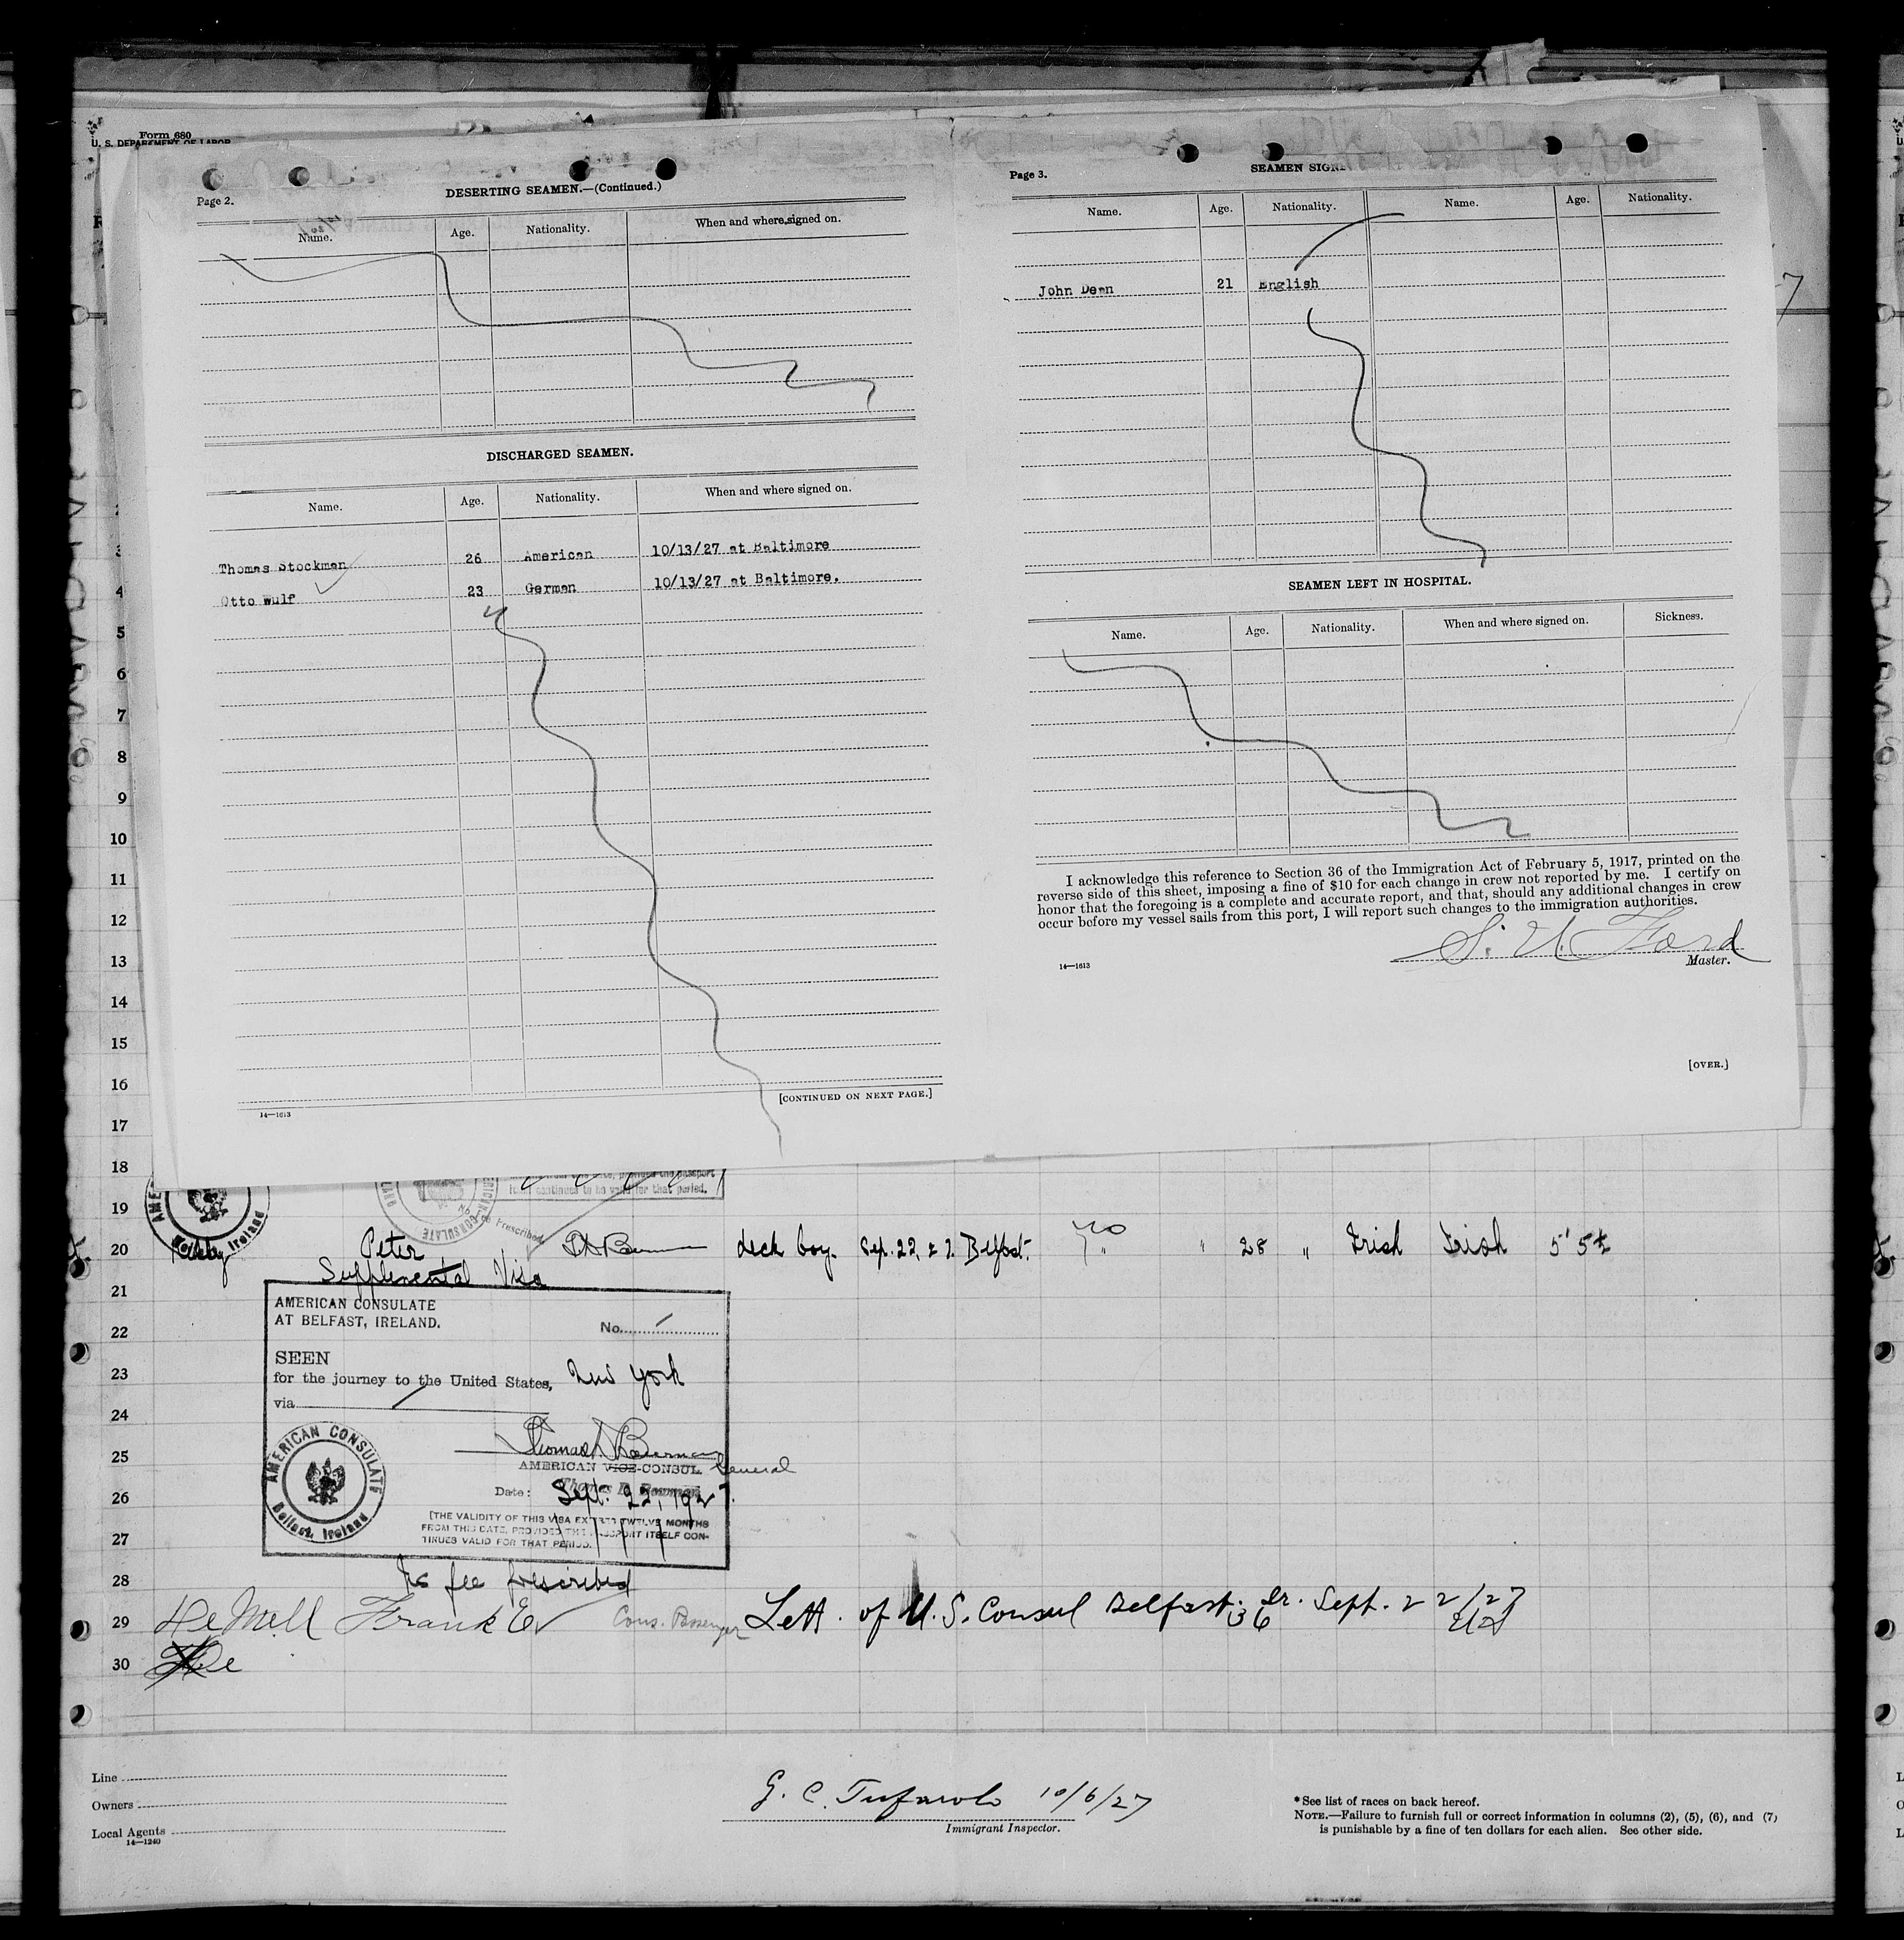 Form 680
U. S. DEPARTMENT OF LABOR
Page 2.
DESERTING SEAMEN.—(Continued.)
Name. Age. Nationality. When and where signed on.
DISCHARGED SEAMEN.
Name. Age. Nationality. When and where signed on.
Thomas Stockman 26 American 10/13/27 at Baltimore
Otto Wulf 23 German 10/13/27 at Baltimore.
[CONTINUED ON NEXT PAGE.]
14—1613
Page 3.
SEAMEN SIGN
Name. Age. Nationality. Name. Age. Nationality.
John Dean 21 English
SEAMEN LEFT IN HOSPITAL.
Name. Age. Nationality. When and where signed on. Sickness.
I acknowledge this reference to Section 36 of the Immigration Act of February 5, 1917, printed on the
reverse side of this sheet, imposing a fine of $10 for each change in crew not reported by me. I certify on
honor that the foregoing is a complete and accurate report, and that, should any additional changes in crew
occur before my vessel sails from this port, I will report such changes to the immigration authorities.
Ford
Master.
14—1613
[OVER.]
3
4
5
6
7
8
9
10
11
12
13
14
15
16
17
18
itself continues to be valid for that period.
No Fee Prescribed
19
20 Peter deck boy. Sep. 22, 27. Belfast. 28 " Irish Irish 5' 5½
Supplemental Visa
21
AMERICAN CONSULATE
AT BELFAST, IRELAND.
No.
22
SEEN
for the journey to the United States, New York
23
via
24
AMERICAN CONSULATE
Belfast, Ireland
25
AMERICAN VICE-CONSUL General
Date: Sept. 22, 1927.
26
[THE VALIDITY OF THIS VISA EXPIRES TWELVE MONTHS
FROM THIS DATE, PROVIDED THE PASSPORT ITSELF CON-
TINUES VALID FOR THAT PERIOD.
27
28
No fee prescribed
29 De Mell Frank E. Cons. Passenger Lett. of U.S. Consul Belfast. Ir. Sept. 22/27
36
30 De
Line
Owners
Local Agents
14—1240
G. C. Tufarolo 10/6/27
Immigrant Inspector.
*See list of races on back hereof.
NOTE.—Failure to furnish full or correct information in columns (2), (5), (6), and (7)
is punishable by a fine of ten dollars for each alien. See other side.